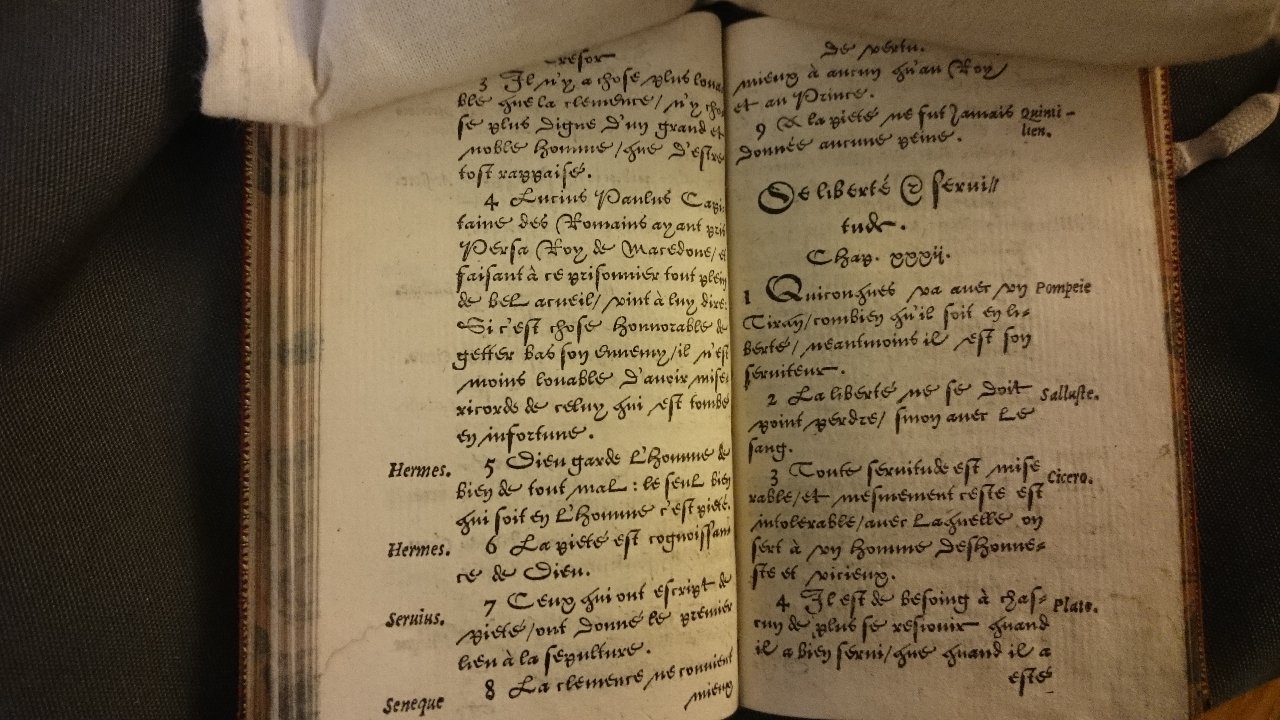 Tresor
3 Il n'y a chose plus loua
ble que la clemence/ n'y cho
se plus digne d'un grand et
noble homme/que d'estre
tost rappaisé.
4 Lucius Paulus Capi
taine des Romains ayant pris
Persa Roy de Macedone/ et
faisant à ce prisonnier tout plein
de bel acueil/ vint à luy dire:
Si c'est chose honnorable de
getter bas son ennemy/il n'est
moins louable d'avoir mise
ricorde de celuy qui est tombé
en infortune.
Hermes. 5 Dieu garde l'homme de
bien de tout mal: le seul bien
qui soit en l'homme c'est pieté.
Hermes. 6 La pieté est cognoissan
ce de Dieu.
Seruius. 7 Ceux qui ont escript de
pieté/ont donné le premier
lieu à la sepulture.
Seneque 8 La clemence ne conuient
mieux
de vertu.
mieux à aucun qu'au Roy
et au Prince.
9 A la pieté ne fut Jamais Quinti-
donnée aucune peine. lien.
De liberté & serui//
tude.
Chap. xxxij.
1 Quiconques va auec vn Pompeie
Tiran/combien qu'il soit en li-
berté/ neantmoins il est son
seruiteur.
2 La liberté ne se doit Salluste.
point perdre/ sinon auec le
sang.
3 Toute seruitude est mise Cicero.
rable/et mesmement ceste est
intolerable/auec laquelle on
sert à vn homme deshonne-
ste et vicieux.
4 Il est de besoing à chas- Plato.
cun de plus se resiouir quand
il a bien serui/que quand il a
esté